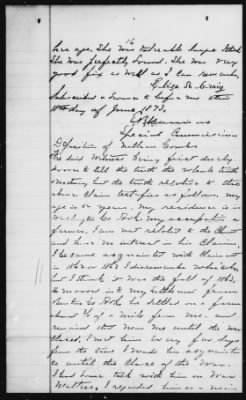 16
her age. She was tolerable large
She was perfectly sound. She was very
good fix as well as I can remember
Eliza R. Craig
Subscribed & sworn to before me this
10th day of June, 1873.
Special Commissioner
Deposition of Nathan Combs
The said Witness being first duly
sworn to tell the truth the whole truth
& nothing but the truth relative to the
above Claim testifies as follows. My
age is years, my residence is
my occupation a
farmer. I am not related to the Clmt
and have no interest in his Claim.
I became acquainted with Claimant
in 1862 or 1863 I disremember which,
but I think it was the fall of 1862.
he moved into my settlement from
Benton Co. Ark. he settled on a farm
about 3/4 of a mile from me, and
remained there near me until the war
closed. I met him every few days
from the time I made his acquaintance
until the close of the War.
I had some talk with him on War
Matters. I regarded him as a union